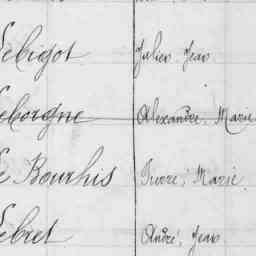 Lebigot Julien, Jean
Leborgne Alexandre, Marie
Le Bourhis Pierre, Marie
Lebret André, Jean